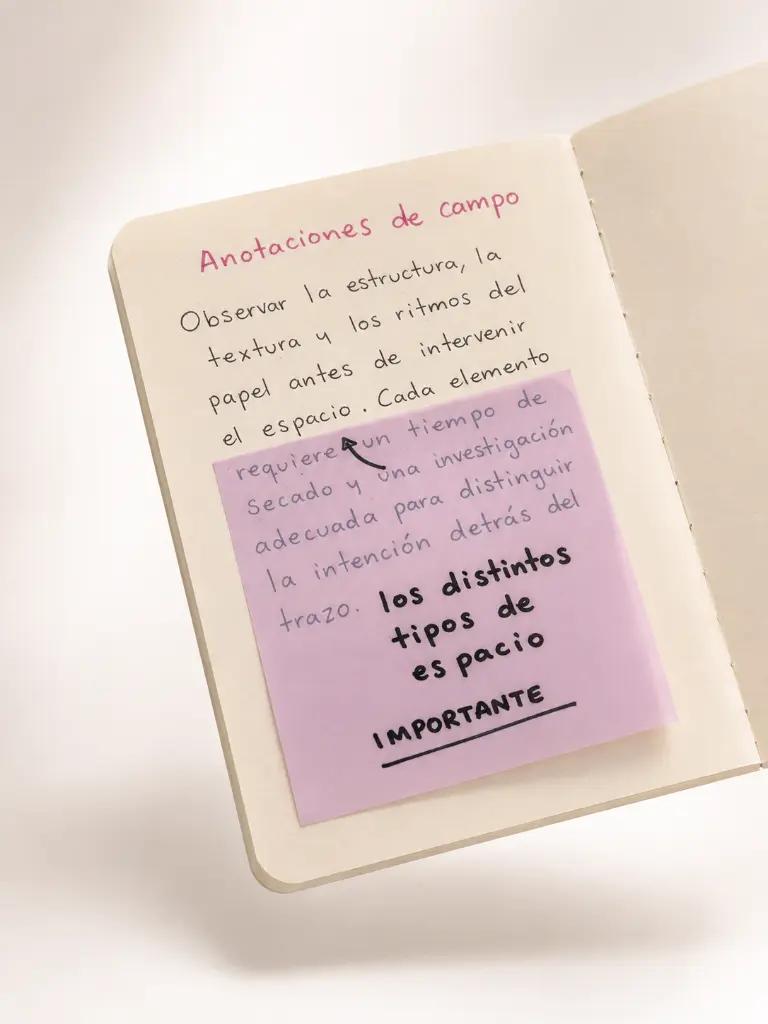 Anotaciones de campo
Observar la estructura, la
textura y los ritmos del
papel antes de intervenir
el espacio. Cada elemento
requiere un tiempo de
secado y una investigación
adecuada para distinguir
la intención detrás del
trazo.
los distintos
tipos de
espacio
IMPORTANTE